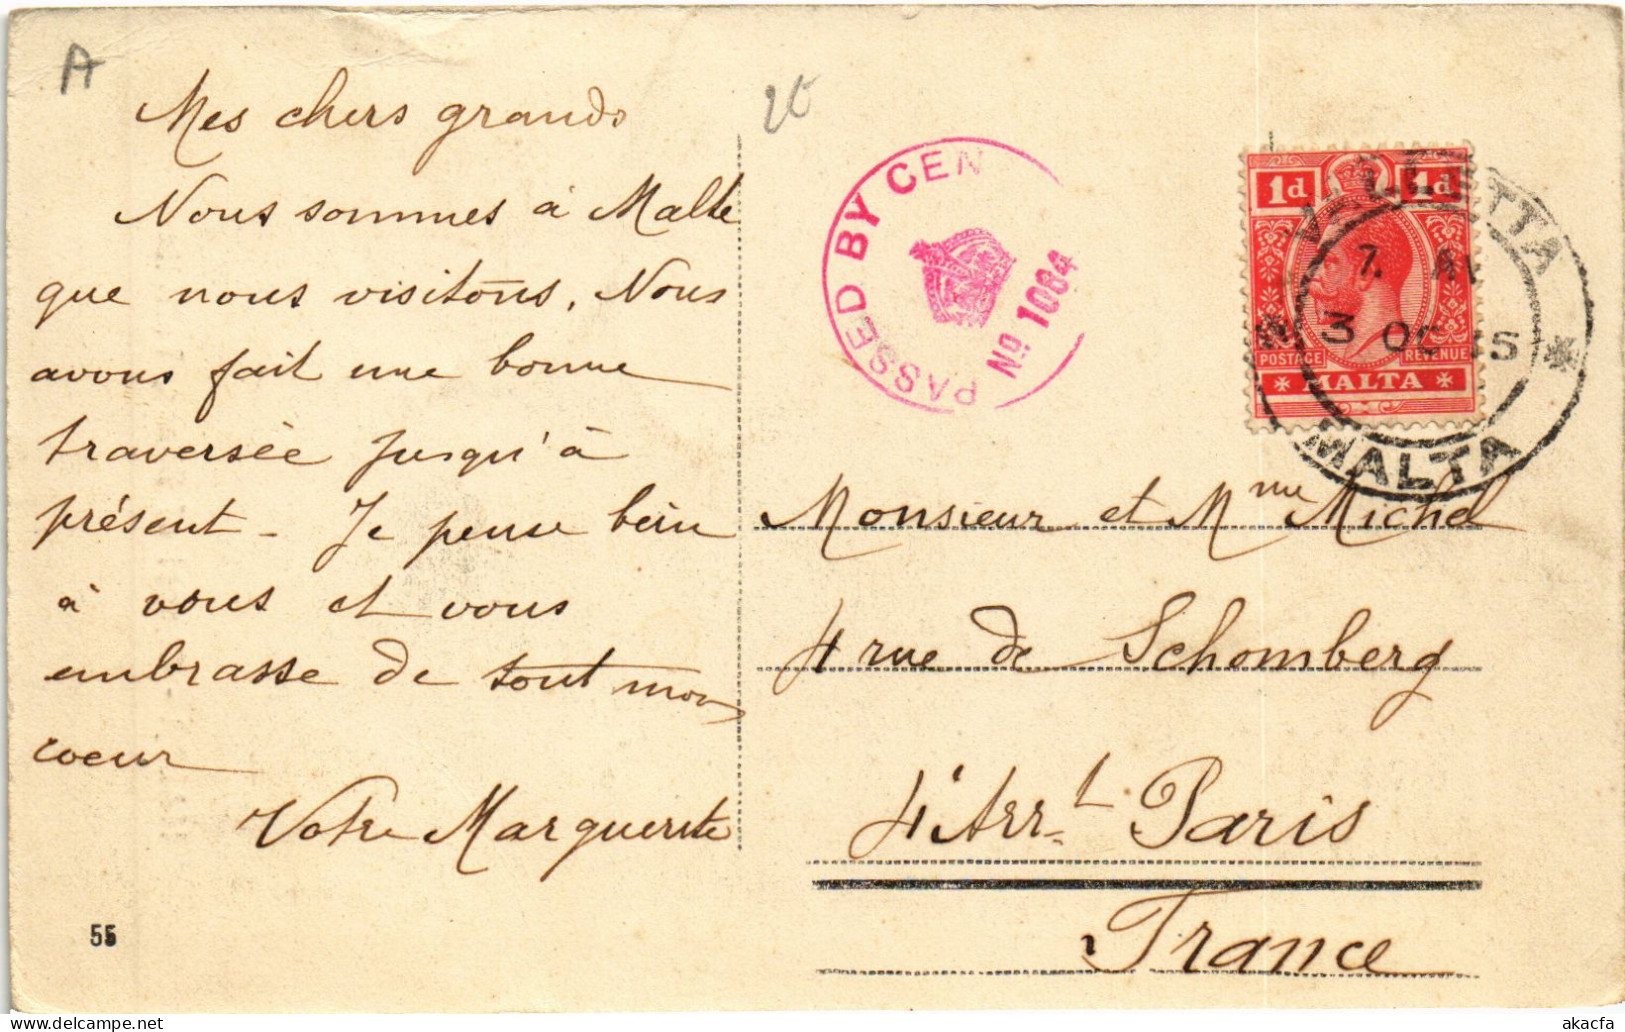 A
20
Mes chers grands
Nous sommes à Malte
que nous visitons, Nous
avons fait une bonne
traversée jusqu'à
présent - Je pense bien
à vous et vous
embrasse de tout mon
coeur
Votre Marguerite
55
PASSED BY CEN
No 1084
1d 1d
POSTAGE REVENUE
MALTA
VALLETTA
7. AM
3 OC 15
MALTA
Monsieur et Mme Michel
4 rue de Schomberg
4e Arrt Paris
France
akacfa